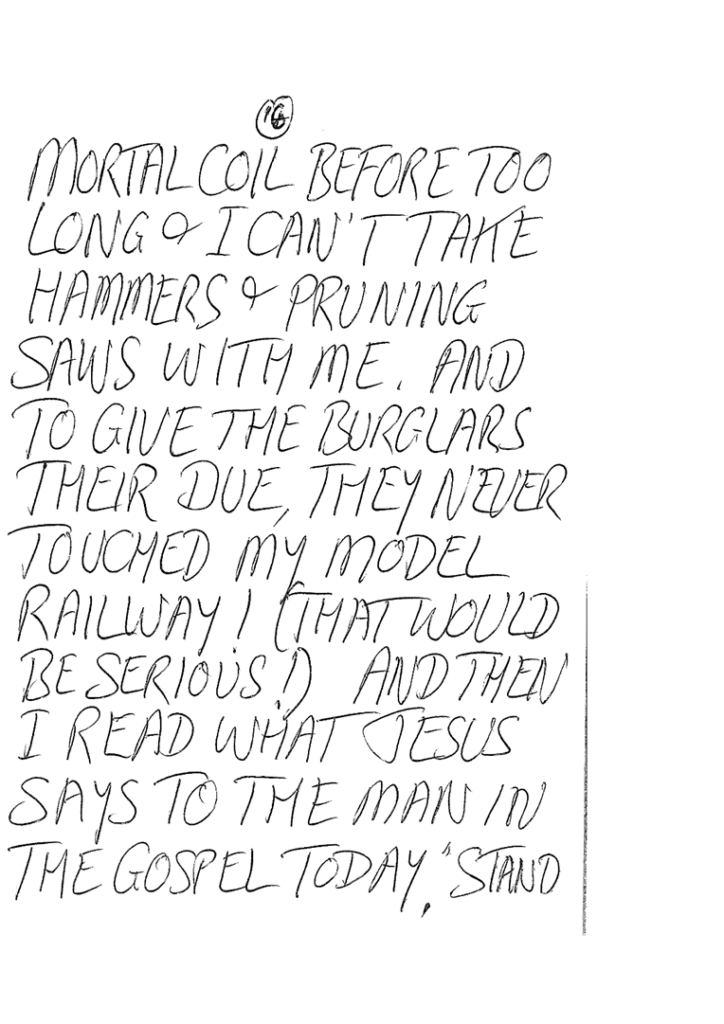 16
MORTAL COIL BEFORE TOO
LONG & I CAN'T TAKE
HAMMERS & PRUNING
SAWS WITH ME. AND
TO GIVE THE BURGLARS
THEIR DUE, THEY NEVER
TOUCHED MY MODEL
RAILWAY! (THAT WOULD
BE SERIOUS!) AND THEN
I READ WHAT JESUS
SAYS TO THE MAN IN
THE GOSPEL TODAY, "STAND